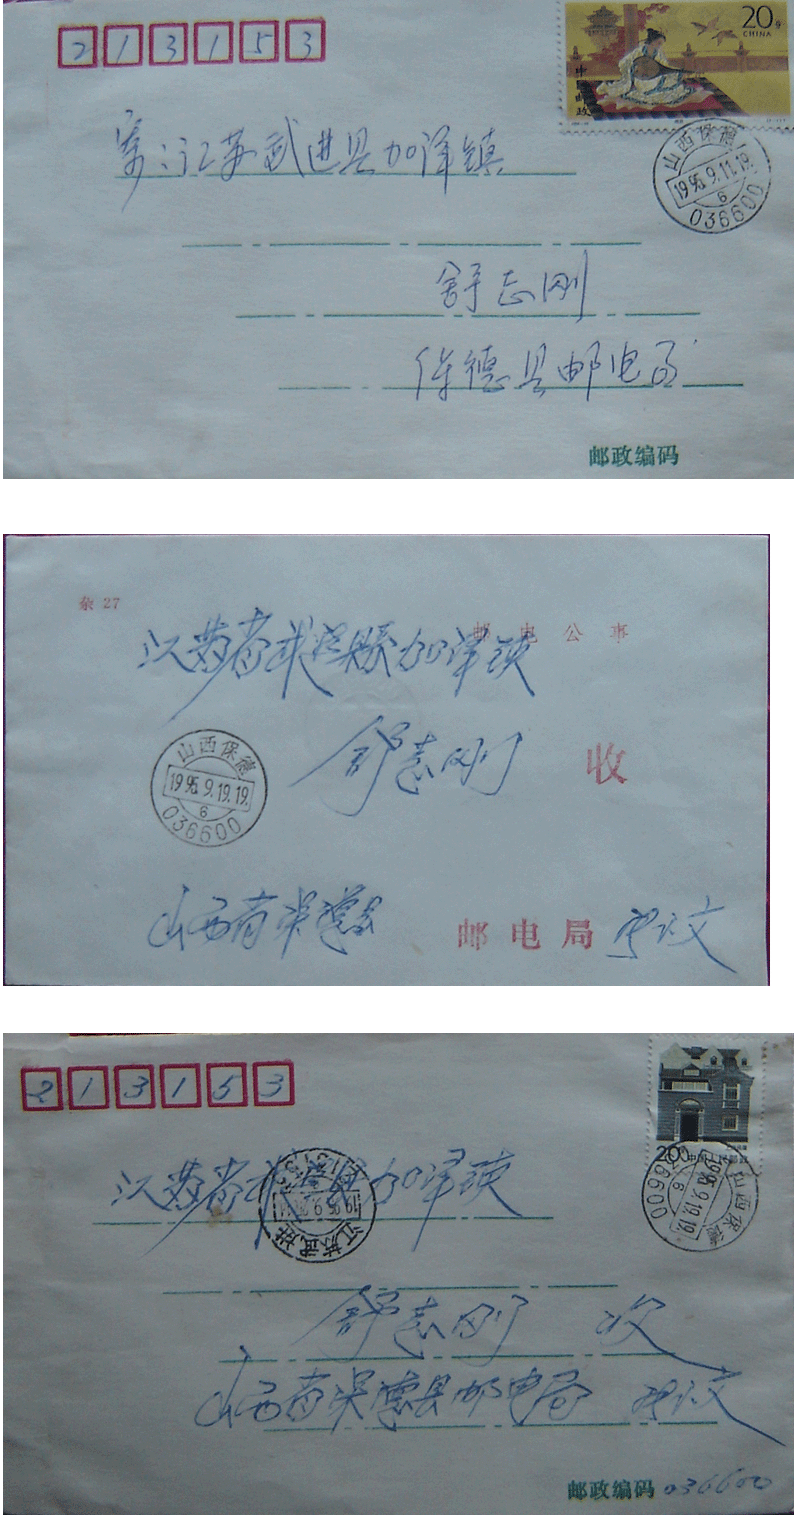 213153
20分
CHINA
中国邮政
寄:江苏武进县加泽镇
山西保德
1995.9.11.19.
6
036600
舒志刚
保德县邮电局
邮政编码
杂 27
邮 电 公 事
江苏省武进县加泽镇
山西保德
1995.9.19.19.
6
036600
舒志刚 收
山西省保德县 邮电局
213153
江苏省武进县加泽镇
20分 中国人民邮政
山西保德
1995.9.19.19.
6
036600
江苏武进
舒志刚 收
山西省保德县邮电局
邮政编码 036600